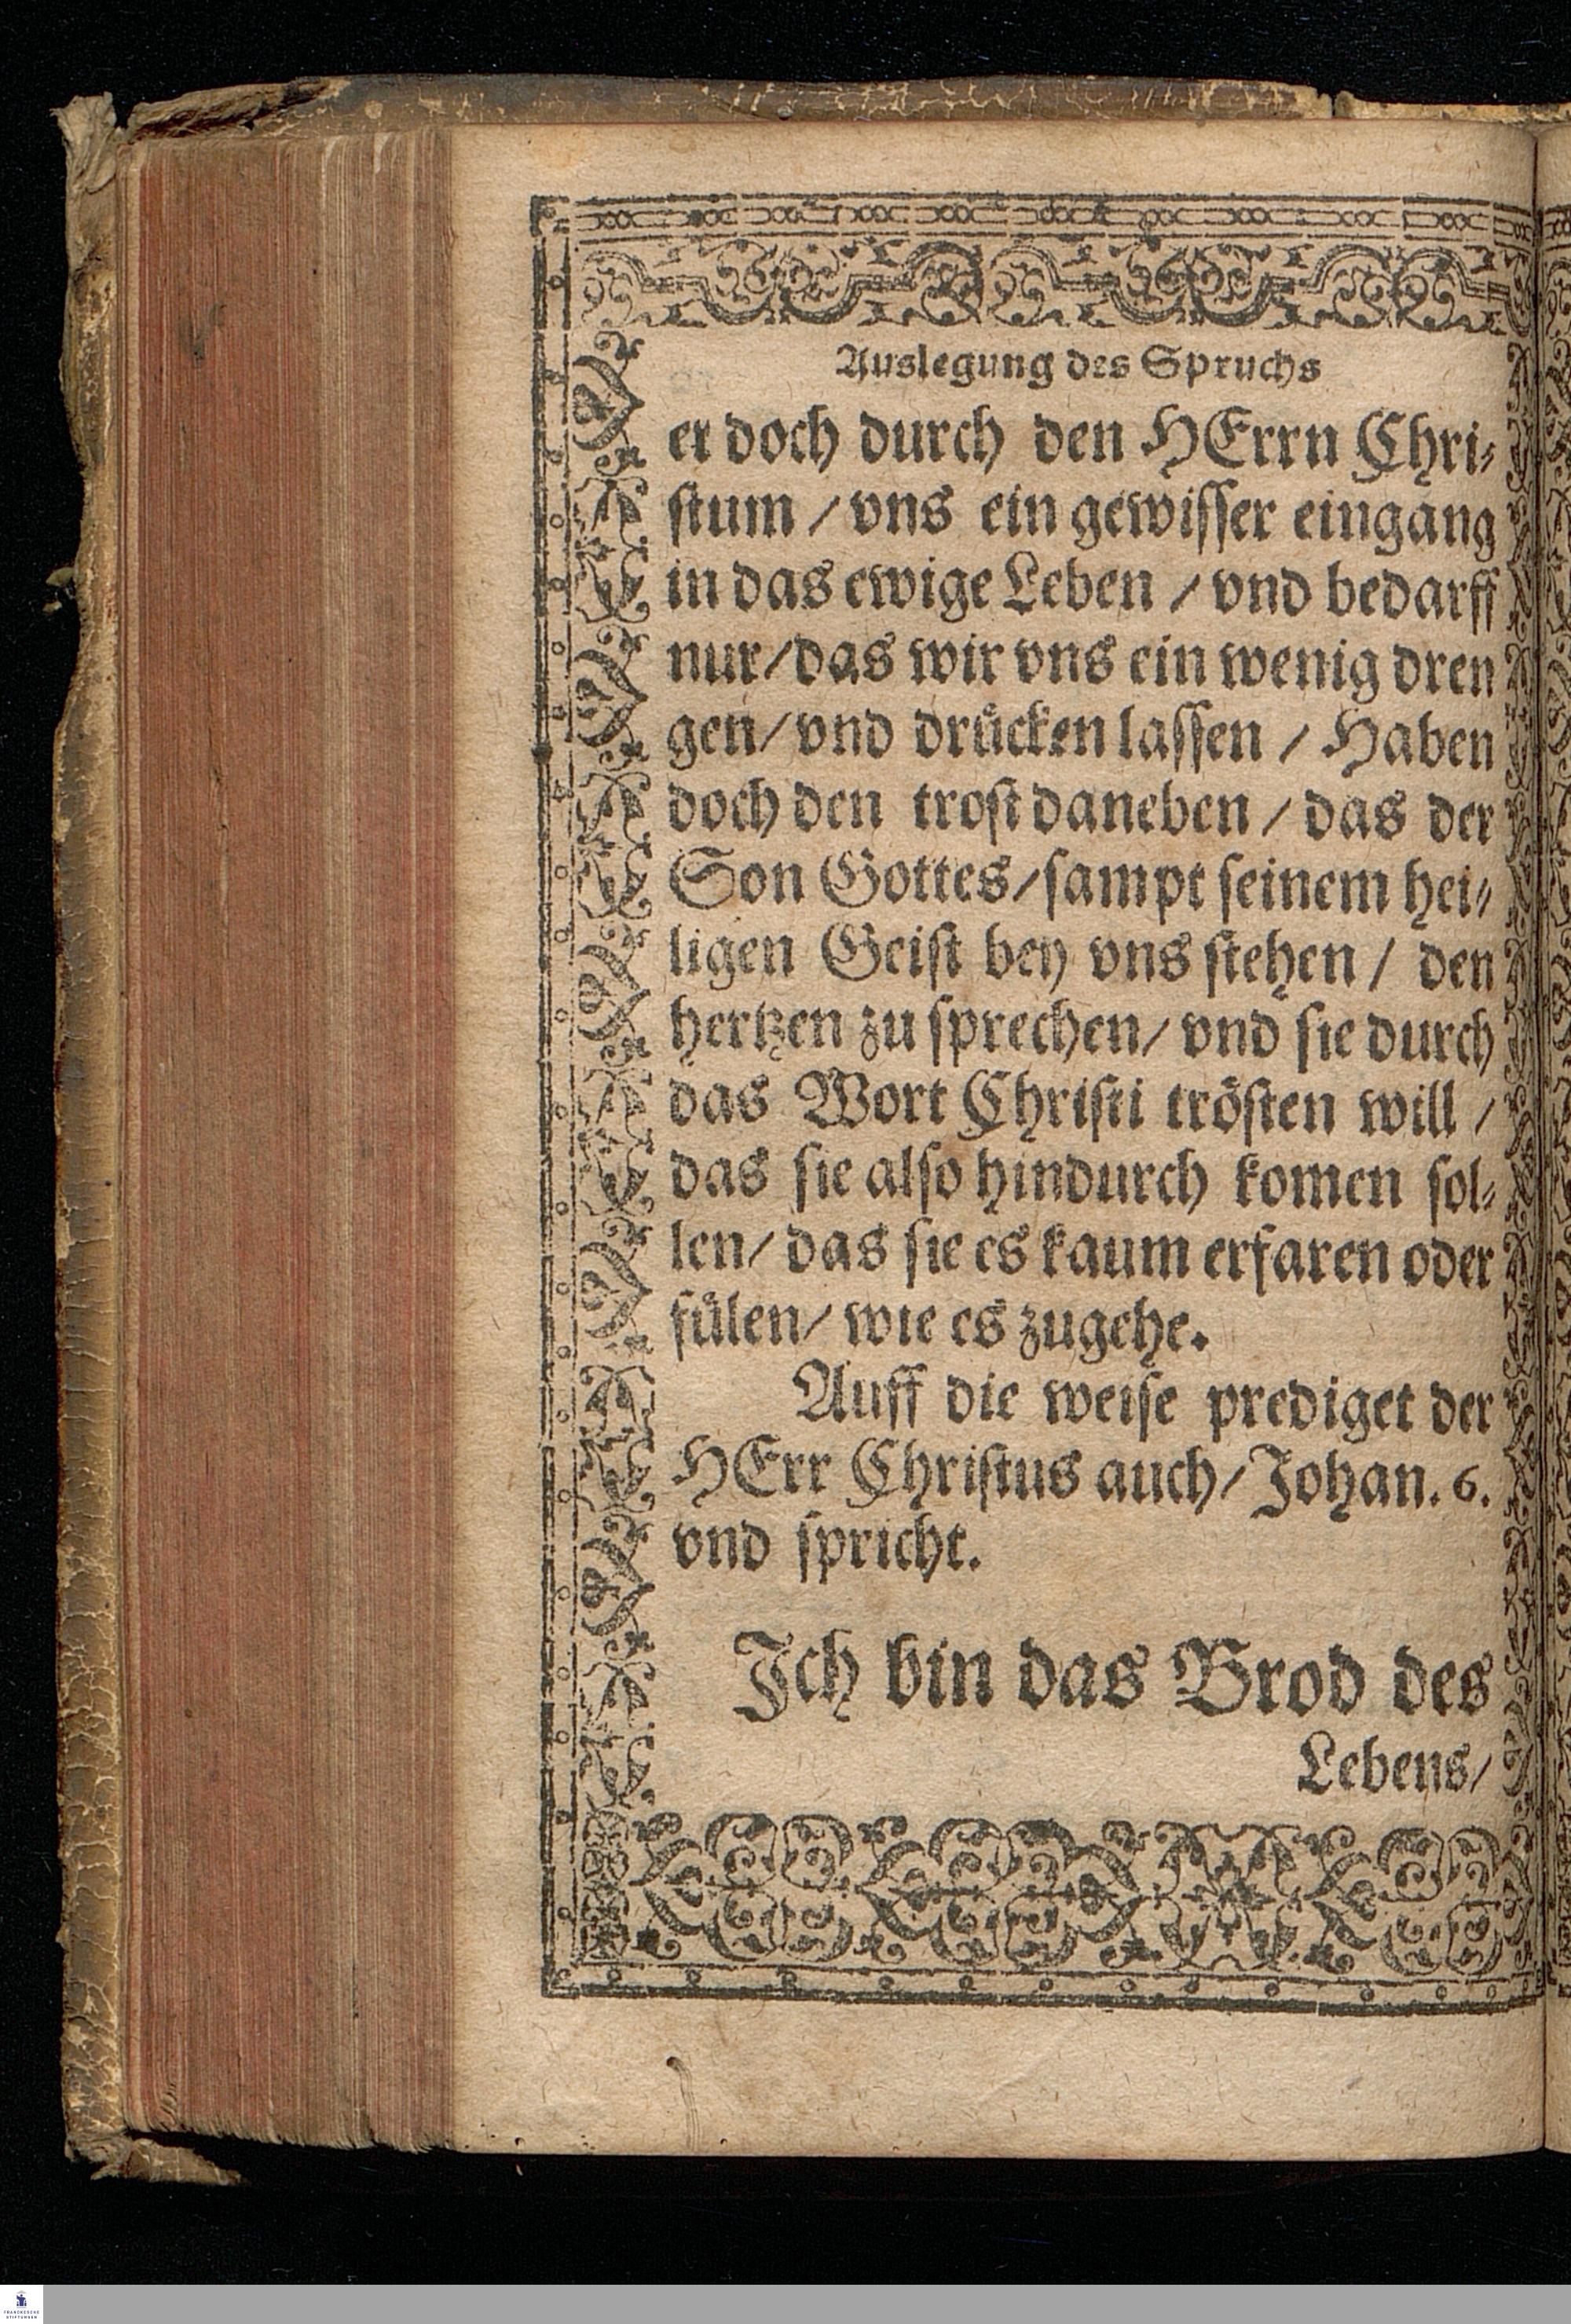 Auslegung des Spruchs
er doch durch den HErrn Chri⸗
stum / vns ein gewisser eingang
in das ewige Leben / vnd bedarff
nur / das wir vns ein wenig dren
gen / vnd drücken lassen / Haben
doch den trost daneben / das der
Son Gottes / sampt seinem hei⸗
ligen Geist bey vns stehen / den
hertzen zu sprechen / vnd sie durch
das Wort Christi trösten will /
das sie also hindurch komen sol⸗
len / das sie es kaum erfaren oder
fülen / wie es zugehe.
Auff die weise prediget der
HErr Christus auch / Johan. 6.
vnd spricht.
Ich bin das Brod des
Lebens /
FRANCKESCHE
STIFTUNGEN